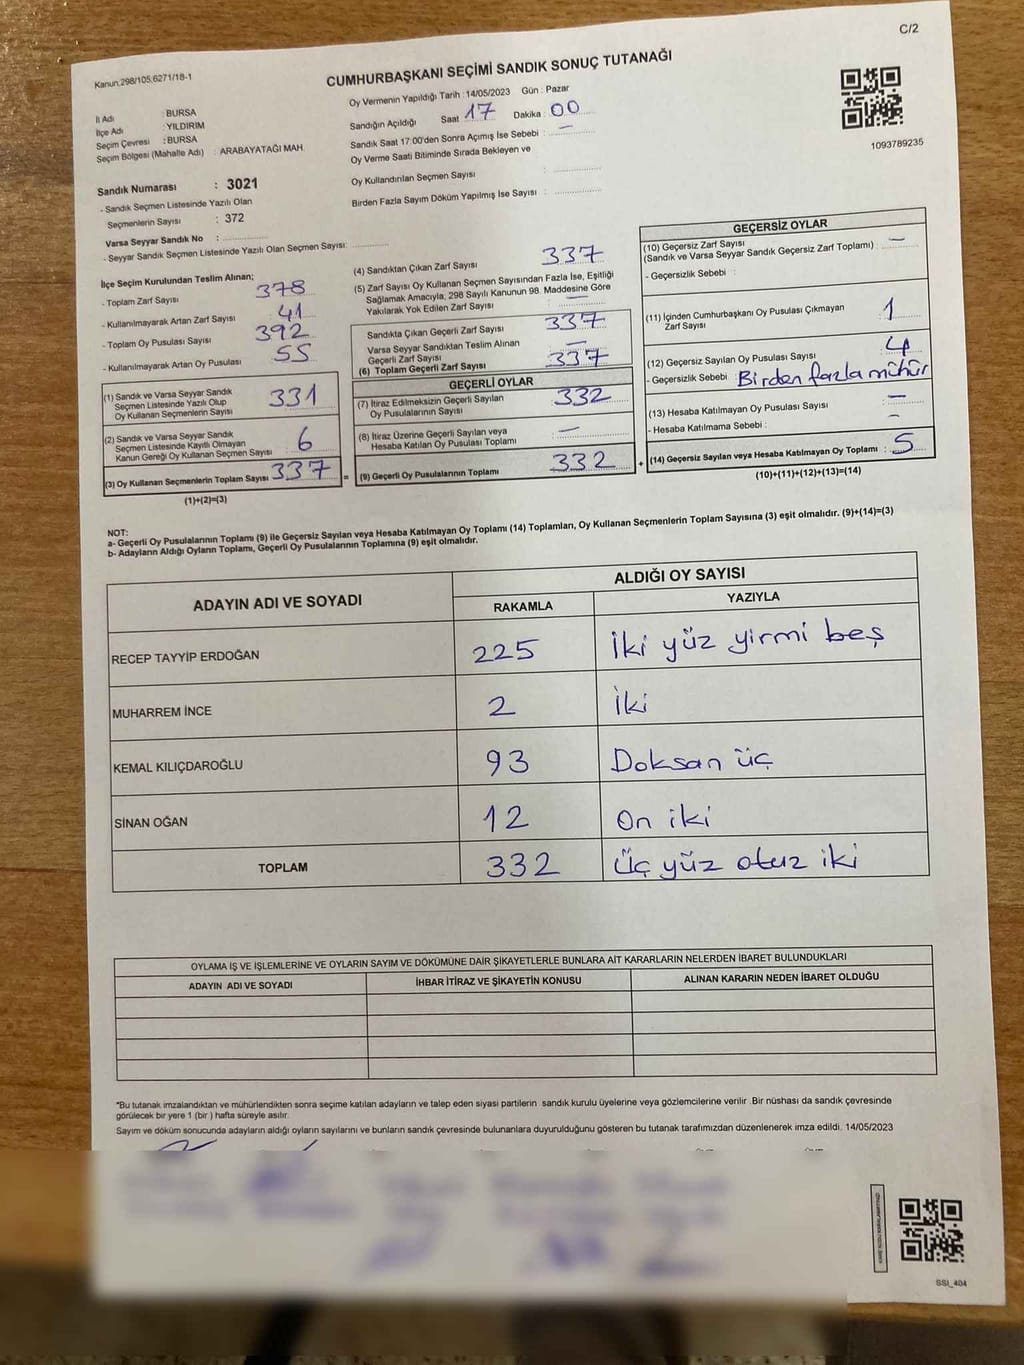 C/2
Kanun:298/105,6271/18-1
CUMHURBAŞKANI SEÇİMİ SANDIK SONUÇ TUTANAĞI
İl Adı : BURSA
İlçe Adı : YILDIRIM
Seçim Çevresi : BURSA
Seçim Bölgesi (Mahalle Adı) : ARABAYATAĞI MAH.
Oy Vermenin Yapıldığı Tarih : 14/05/2023 Gün : Pazar
Sandığın Açıldığı Saat 17 Dakika : 00
Sandık Saat 17:00'den Sonra Açımış İse Sebebi : –
Oy Verme Saati Bitiminde Sırada Bekleyen ve
Oy Kullandırılan Seçmen Sayısı :
Birden Fazla Sayım Döküm Yapılmış İse Sayısı :
1093789235
Sandık Numarası : 3021
- Sandık Seçmen Listesinde Yazılı Olan
Seçmenlerin Sayısı : 372
Varsa Seyyar Sandık No :
- Seyyar Sandık Seçmen Listesinde Yazılı Olan Seçmen Sayısı:
İlçe Seçim Kurulundan Teslim Alınan;
- Toplam Zarf Sayısı 378
- Kullanılmayarak Artan Zarf Sayısı 41
- Toplam Oy Pusulası Sayısı 392
- Kullanılmayarak Artan Oy Pusulası 55
(1) Sandık ve Varsa Seyyar Sandık
Seçmen Listesinde Yazılı Olup
Oy Kullanan Seçmenlerin Sayısı 331
(2) Sandık ve Varsa Seyyar Sandık
Seçmen Listesinde Kayıtlı Olmayan
Kanun Gereği Oy Kullanan Seçmen Sayısı : 6
(3) Oy Kullanan Seçmenlerin Toplam Sayısı : 337 =
(1)+(2)=(3)
(4) Sandıktan Çıkan Zarf Sayısı 337
(5) Zarf Sayısı Oy Kullanan Seçmen Sayısından Fazla İse, Eşitliği
Sağlamak Amacıyla, 298 Sayılı Kanunun 98. Maddesine Göre
Yakılarak Yok Edilen Zarf Sayısı : –
Sandıkta Çıkan Geçerli Zarf Sayısı 337
Varsa Seyyar Sandıktan Teslim Alınan
Geçerli Zarf Sayısı –
(6) Toplam Geçerli Zarf Sayısı 337
GEÇERLİ OYLAR
(7) İtiraz Edilmeksizin Geçerli Sayılan
Oy Pusulalarının Sayısı 332
(8) İtiraz Üzerine Geçerli Sayılan veya
Hesaba Katılan Oy Pusulası Toplamı –
(9) Geçerli Oy Pusulalarının Toplamı 332 +
GEÇERSİZ OYLAR
(10) Geçersiz Zarf Sayısı
(Sandık ve Varsa Seyyar Sandık Geçersiz Zarf Toplamı) : –
- Geçersizlik Sebebi :
(11) İçinden Cumhurbaşkanı Oy Pusulası Çıkmayan
Zarf Sayısı 1
(12) Geçersiz Sayılan Oy Pusulası Sayısı 4
- Geçersizlik Sebebi : Birden fazla mühür
(13) Hesaba Katılmayan Oy Pusulası Sayısı : –
- Hesaba Katılmama Sebebi : –
(14) Geçersiz Sayılan veya Hesaba Katılmayan Oy Toplamı : 5
(10)+(11)+(12)+(13)=(14)
NOT:
a- Geçerli Oy Pusulalarının Toplamı (9) ile Geçersiz Sayılan veya Hesaba Katılmayan Oy Toplamı (14) Toplamları, Oy Kullanan Seçmenlerin Toplam Sayısına (3) eşit olmalıdır. (9)+(14)=(3)
b- Adayların Aldığı Oyların Toplamı, Geçerli Oy Pusulalarının Toplamına (9) eşit olmalıdır.
ADAYIN ADI VE SOYADI
ALDIĞI OY SAYISI
RAKAMLA YAZIYLA
RECEP TAYYİP ERDOĞAN 225 İki yüz yirmi beş
MUHARREM İNCE 2 İki
KEMAL KILIÇDAROĞLU 93 Doksan üç
SİNAN OĞAN 12 On iki
TOPLAM 332 Üç yüz otuz iki
OYLAMA İŞ VE İŞLEMLERİNE VE OYLARIN SAYIM VE DÖKÜMÜNE DAİR ŞİKAYETLERLE BUNLARA AİT KARARLARIN NELERDEN İBARET BULUNDUKLARI
ADAYIN ADI VE SOYADI İHBAR İTİRAZ VE ŞİKAYETİN KONUSU ALINAN KARARIN NEDEN İBARET OLDUĞU
*Bu tutanak imzalandıktan ve mühürlendikten sonra seçime katılan adayların ve talep eden siyasi partilerin sandık kurulu üyelerine veya gözlemcilerine verilir .Bir nüshası da sandık çevresinde
görülecek bir yere 1 (bir ) hafta süreyle asılır.
Sayım ve döküm sonucunda adayların aldığı oyların sayılarını ve bunların sandık çevresinde bulunanlara duyurulduğunu gösteren bu tutanak tarafımızdan düzenlenerek imza edildi. 14/05/2023
SSI_404